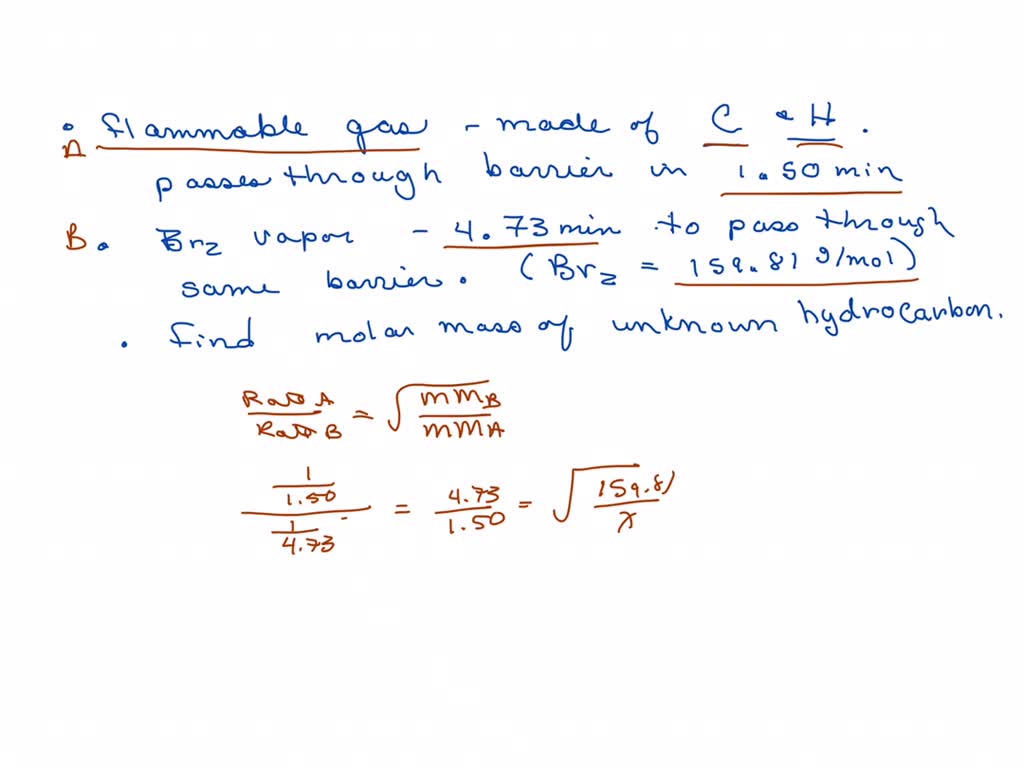 • flammable gas - made of C & H.
A
passes through barrier in 1.50 min
B • Br₂ vapor - 4.73 min to pass through
same barrier. (Br₂ = 159.81 g/mol)
• find molar mass of unknown hydrocarbon.
Rate A / Rate B = √(MM_B / MM_A)
(1/1.50) / (1/4.73) = 4.73/1.50 = √(159.81/x)